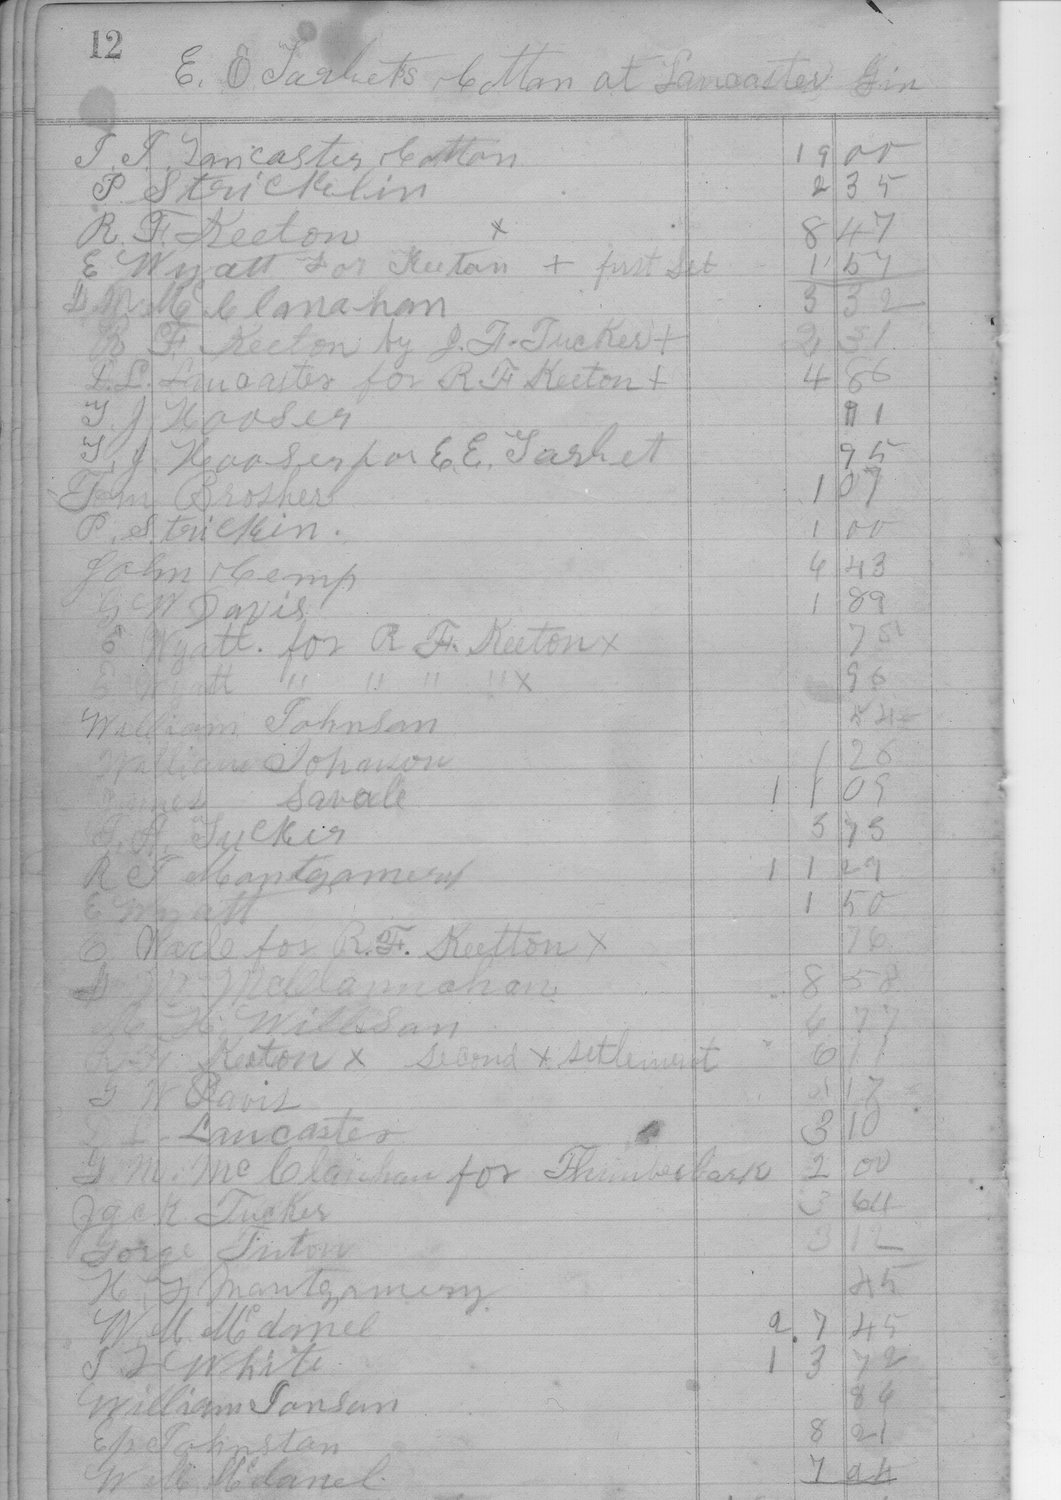 12
E. E Tarkets Cotton at Lancaster Gin
T. T. Lancaster Cotton 19 00
P Stricklin 2 35
R. F. Keeton x 8 47
E Wyatt for Keetan + first Set 1 57
M McClanahan 3 32
R F. Keeton by J. F. Tucker + 2 31
L. L. Lancaster for R F Keeton + 4 66
T. J Hooser 91
T. J. Hooser for E. E. Tarket 95
Tom Brosher 1 07
P. Strickin. 1 00
John Kemp 4 43
G W Davis 1 89
E Wyatt. for R F. Keeton x 75
E Wyatt " " " " x 96
William Johnson
William Johnson 1 26
James Savale 1 1 09
Tucker 5 75
R T Mantgamery 1 1 29
E Wyatt 1 50
E Wade for R. F. Keetton x 76
M McClannahan 8 58
Willsan 6 77
Keeton x Second x settlement 6 11
G W Davis 17
L L Lancaster 3 10
G M. McClanhan for Thimberlark 2 00
Jack Tucker 3 64
Gorge Tuton 3 12
H. Mantgamery 45
W. M. McDanel 2. 7 45
T White 1 3 72
William Jonson 86
Ep Johnstan 8 21
W M McDanel 7 94